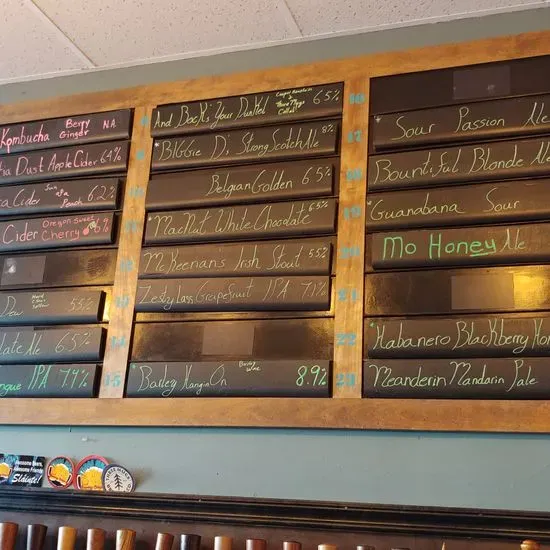 Kombucha Berry Ginger N.A.
Dust Apple Cider 6.4%
Cider Peach 6.2%
Cider Oregon Sweet Cherry 6%
Dew 5.5%
ate Ale 6.5%
ngue IPA 7.9%
And Back's Your Dunkel 6.5%
Collab
BIGGie D's Strong Scotch Ale 8%
Belgian Golden 6.5%
MacNut White Chocolate 6.5%
McKeenan's Irish Stout 5.5%
Zesty Lass Grapefruit IPA 7.1%
Barley Hangin On Barley Wine 8.9%
16
17
18
19
20
21
22
23
15
Sour Passion Ale
Bountiful Blonde Ale
Guanabana Sour
Mo Honey Ale
Habanero BlackBerry Hon
Meanderin Mandarin Pale
Awesome Beers,
Awesome Friends
Sláinte!